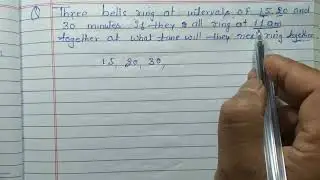 Q Three bells ring at intervals of 15, 20 and
30 minutes. If they all ring at 11 am
together at what time will they next ring together
15, 20, 30,